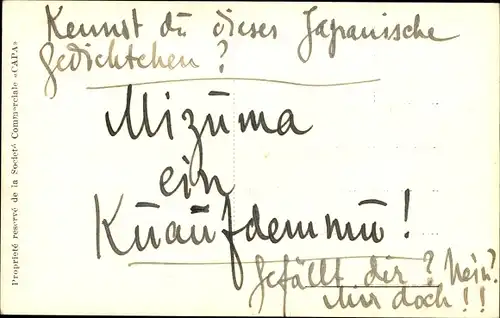 Kennst du dieses Japanische
Gedichtchen?
Mizuma
ein
Kuaufdemmu!
Gefällt dir? Nein?
Mir doch!!
Propriété reservé de la Société Commerciale «CAPA»